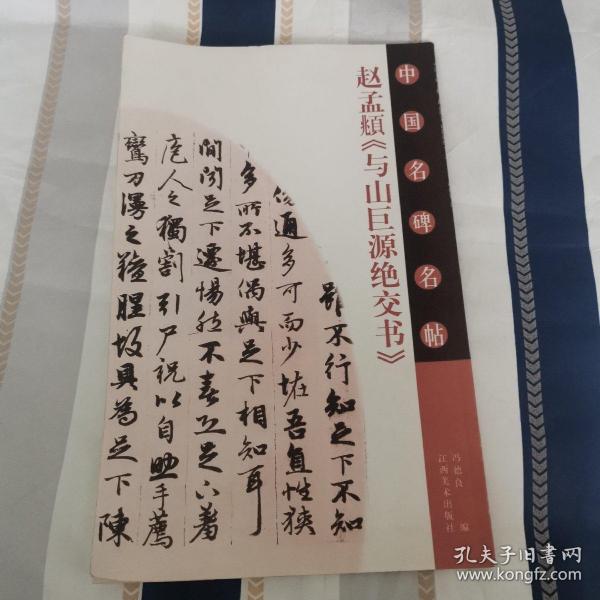 中国名碑名帖
赵孟頫《与山巨源绝交书》
冯德良 编
江西美术出版社
雖不行知足下不知
通多可而少怪吾直性狹
多所不堪偶與足下相知耳
間聞足下遷惕然不喜恐足下羞
庖人之獨割引尸祝以自助手薦
鸞刀漫之羶腥故具為足下陳
孔夫子旧书网
www.kongfz.com